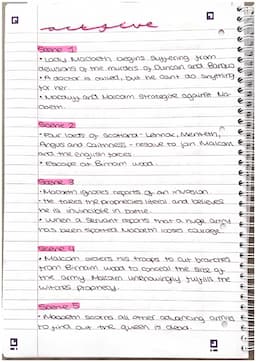 act five
Scene 1
• Lady Macbeth begins suffering from
delusions of the murders of Duncan and Banquo
• A doctor is called, but he can't do anything
for her.
• Macduff and Malcom strategize against Ma-
cbeth.
Scene 2
• Four lords of Scotland - Lennox, Menteith,
Angus and Caithness - resolve to join Malcom
and the english forces.
• Escape at Birnam wood.
Scene 3
• Macbeth ignores reports of an invasion
• He takes the prophecies literal and believes
he is invincible in battle.
• When a servant reports that a huge army
has been spotted Macbeth loses courage
Scene 4
• Malcom orders his troops to cut branches
from Birnam wood to conceal the size of
the army. Malcom unknowingly fulfills the
witches prophecy.
Scene 5
• Macbeth scorns all other advancing armies
to find out the queen is dead.